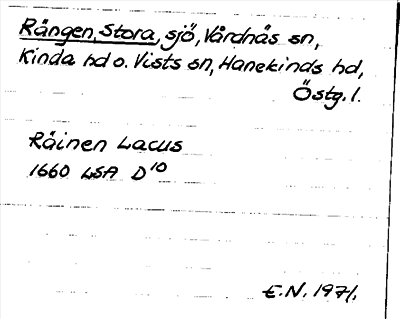 Rången, Stora, sjö, Vårdnäs sn,
Kinda hd o. Vists sn, Hanekinds hd,
Östg. l.
Räinen Lacus
1660 LSA D¹⁰
E.N. 1971.